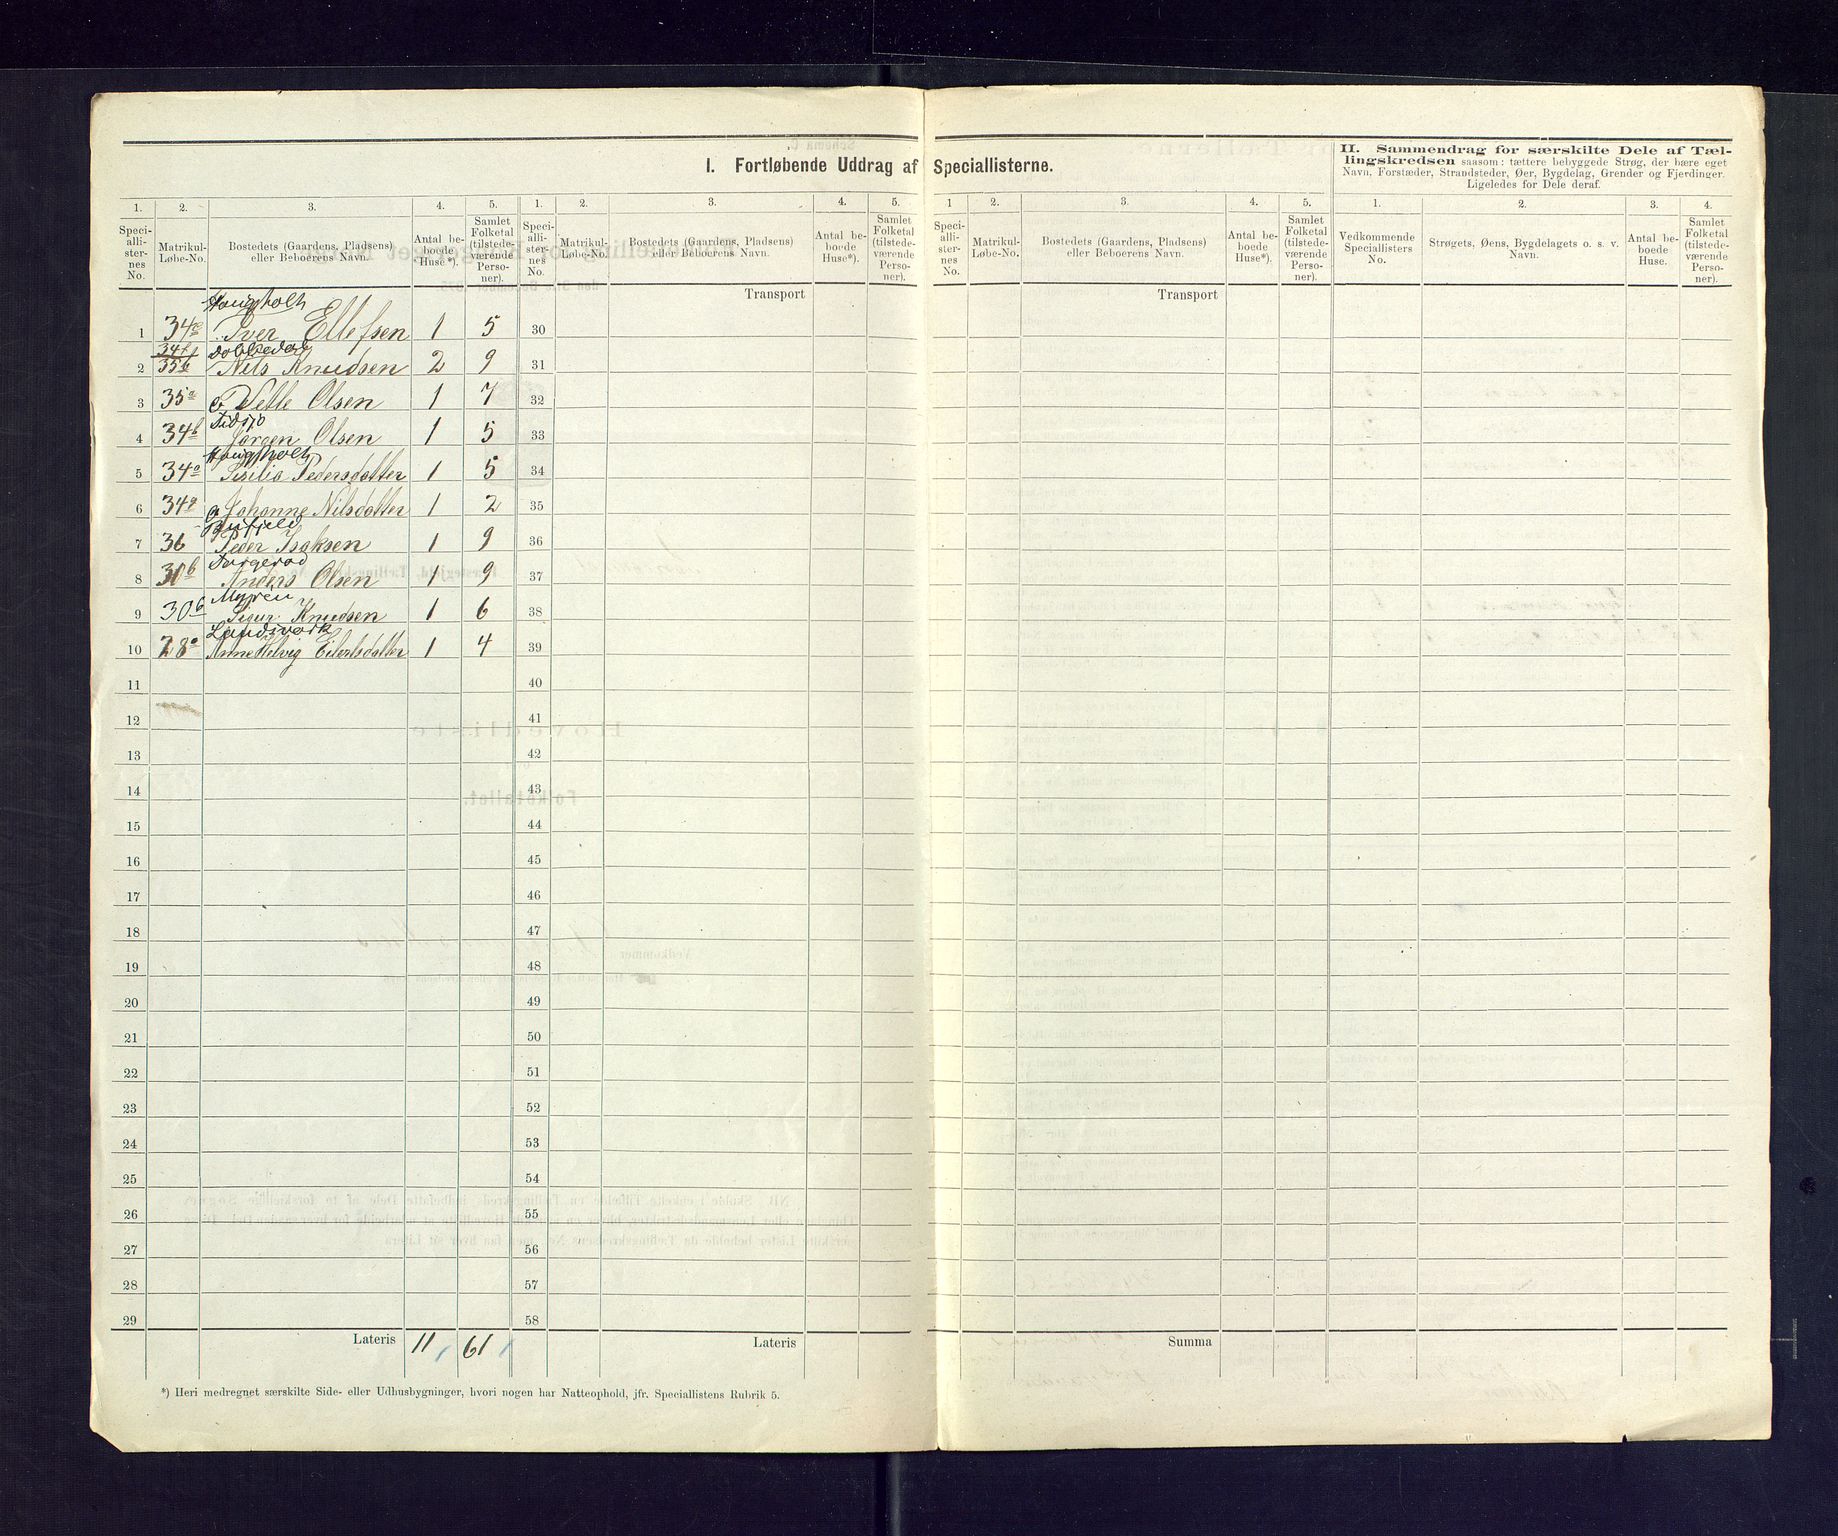 I. Fortløbende Uddrag af Speciallisterne.
II. Sammendrag for særskilte Dele af Tæl-
lingskredsen saasom: tættere bebyggede Strøg, der bære eget
Navn, Forstæder, Strandsteder, Øer, Bygdelag, Grender og Fjerdinger.
Ligeledes for Dele deraf.
1. 2. 3. 4. 5. 1. 2. 3. 4. 5. 1 2. 3. 4. 5. 1. 2. 3. 4.
Speci-
alli-
ster-
nes
No.
Matrikul-
Løbe-No.
Bostedets (Gaardens, Pladsens)
eller Beboerens Navn.
Antal be-
boede
Huse*).
Samlet
Folketal
(tilstede-
værende
Perso-
ner).
Speci-
alli-
ster-
nes
No.
Matrikul-
Løbe-No.
Bostedets (Gaardens, Pladsens)
eller Beboerens Navn.
Antal be-
boede
Huse*).
Samlet
Folketal
(tilstede-
værende
Perso-
ner).
Speci-
alli-
ster-
nes
No.
Matrikul-
Løbe-No.
Bostedets (Gaardens, Pladsens)
eller Beboerens Navn.
Antal be-
boede
Huse*).
Samlet
Folketal
(tilstede-
værende
Perso-
ner).
Vedkommende
Speciallisters
No.
Strøgets, Øens, Bygdelagets o. s. v.
Navn.
Antal be-
boede
Huse.
Samlet
Folketal
(tilstede-
værende
Perso-
ner).
Transport
Transport
Haugholt
1 34 Iver Ellefsen 1 5
34
2 35b Nils Knudsen 2 9
3 35a Olsen 1 7
4 34b Jørgen Olsen 1 5
Haugholt
5 34a Pedersdatter 1 5
6 34a Johanne Nilsdatter 1 2
7 36 Peder Isaksen 1 9
8 30b Anders Olsen 1 9
Myren
9 30b Knudsen 1 6
Landsverk
10 28a Anne Helvig Eilertsdatter 1 4
11
12
13
14
15
16
17
18
19
20
21
22
23
24
25
26
27
28
29
Lateris 11 61
30
31
32
33
34
35
36
37
38
39
40
41
42
43
44
45
46
47
48
49
50
51
52
53
54
55
56
57
58
Lateris
Summa
*) Heri medregnet særskilte Side- eller Udhusbygninger, hvori nogen har Natteophold, jfr. Speciallistens Rubrik 5.